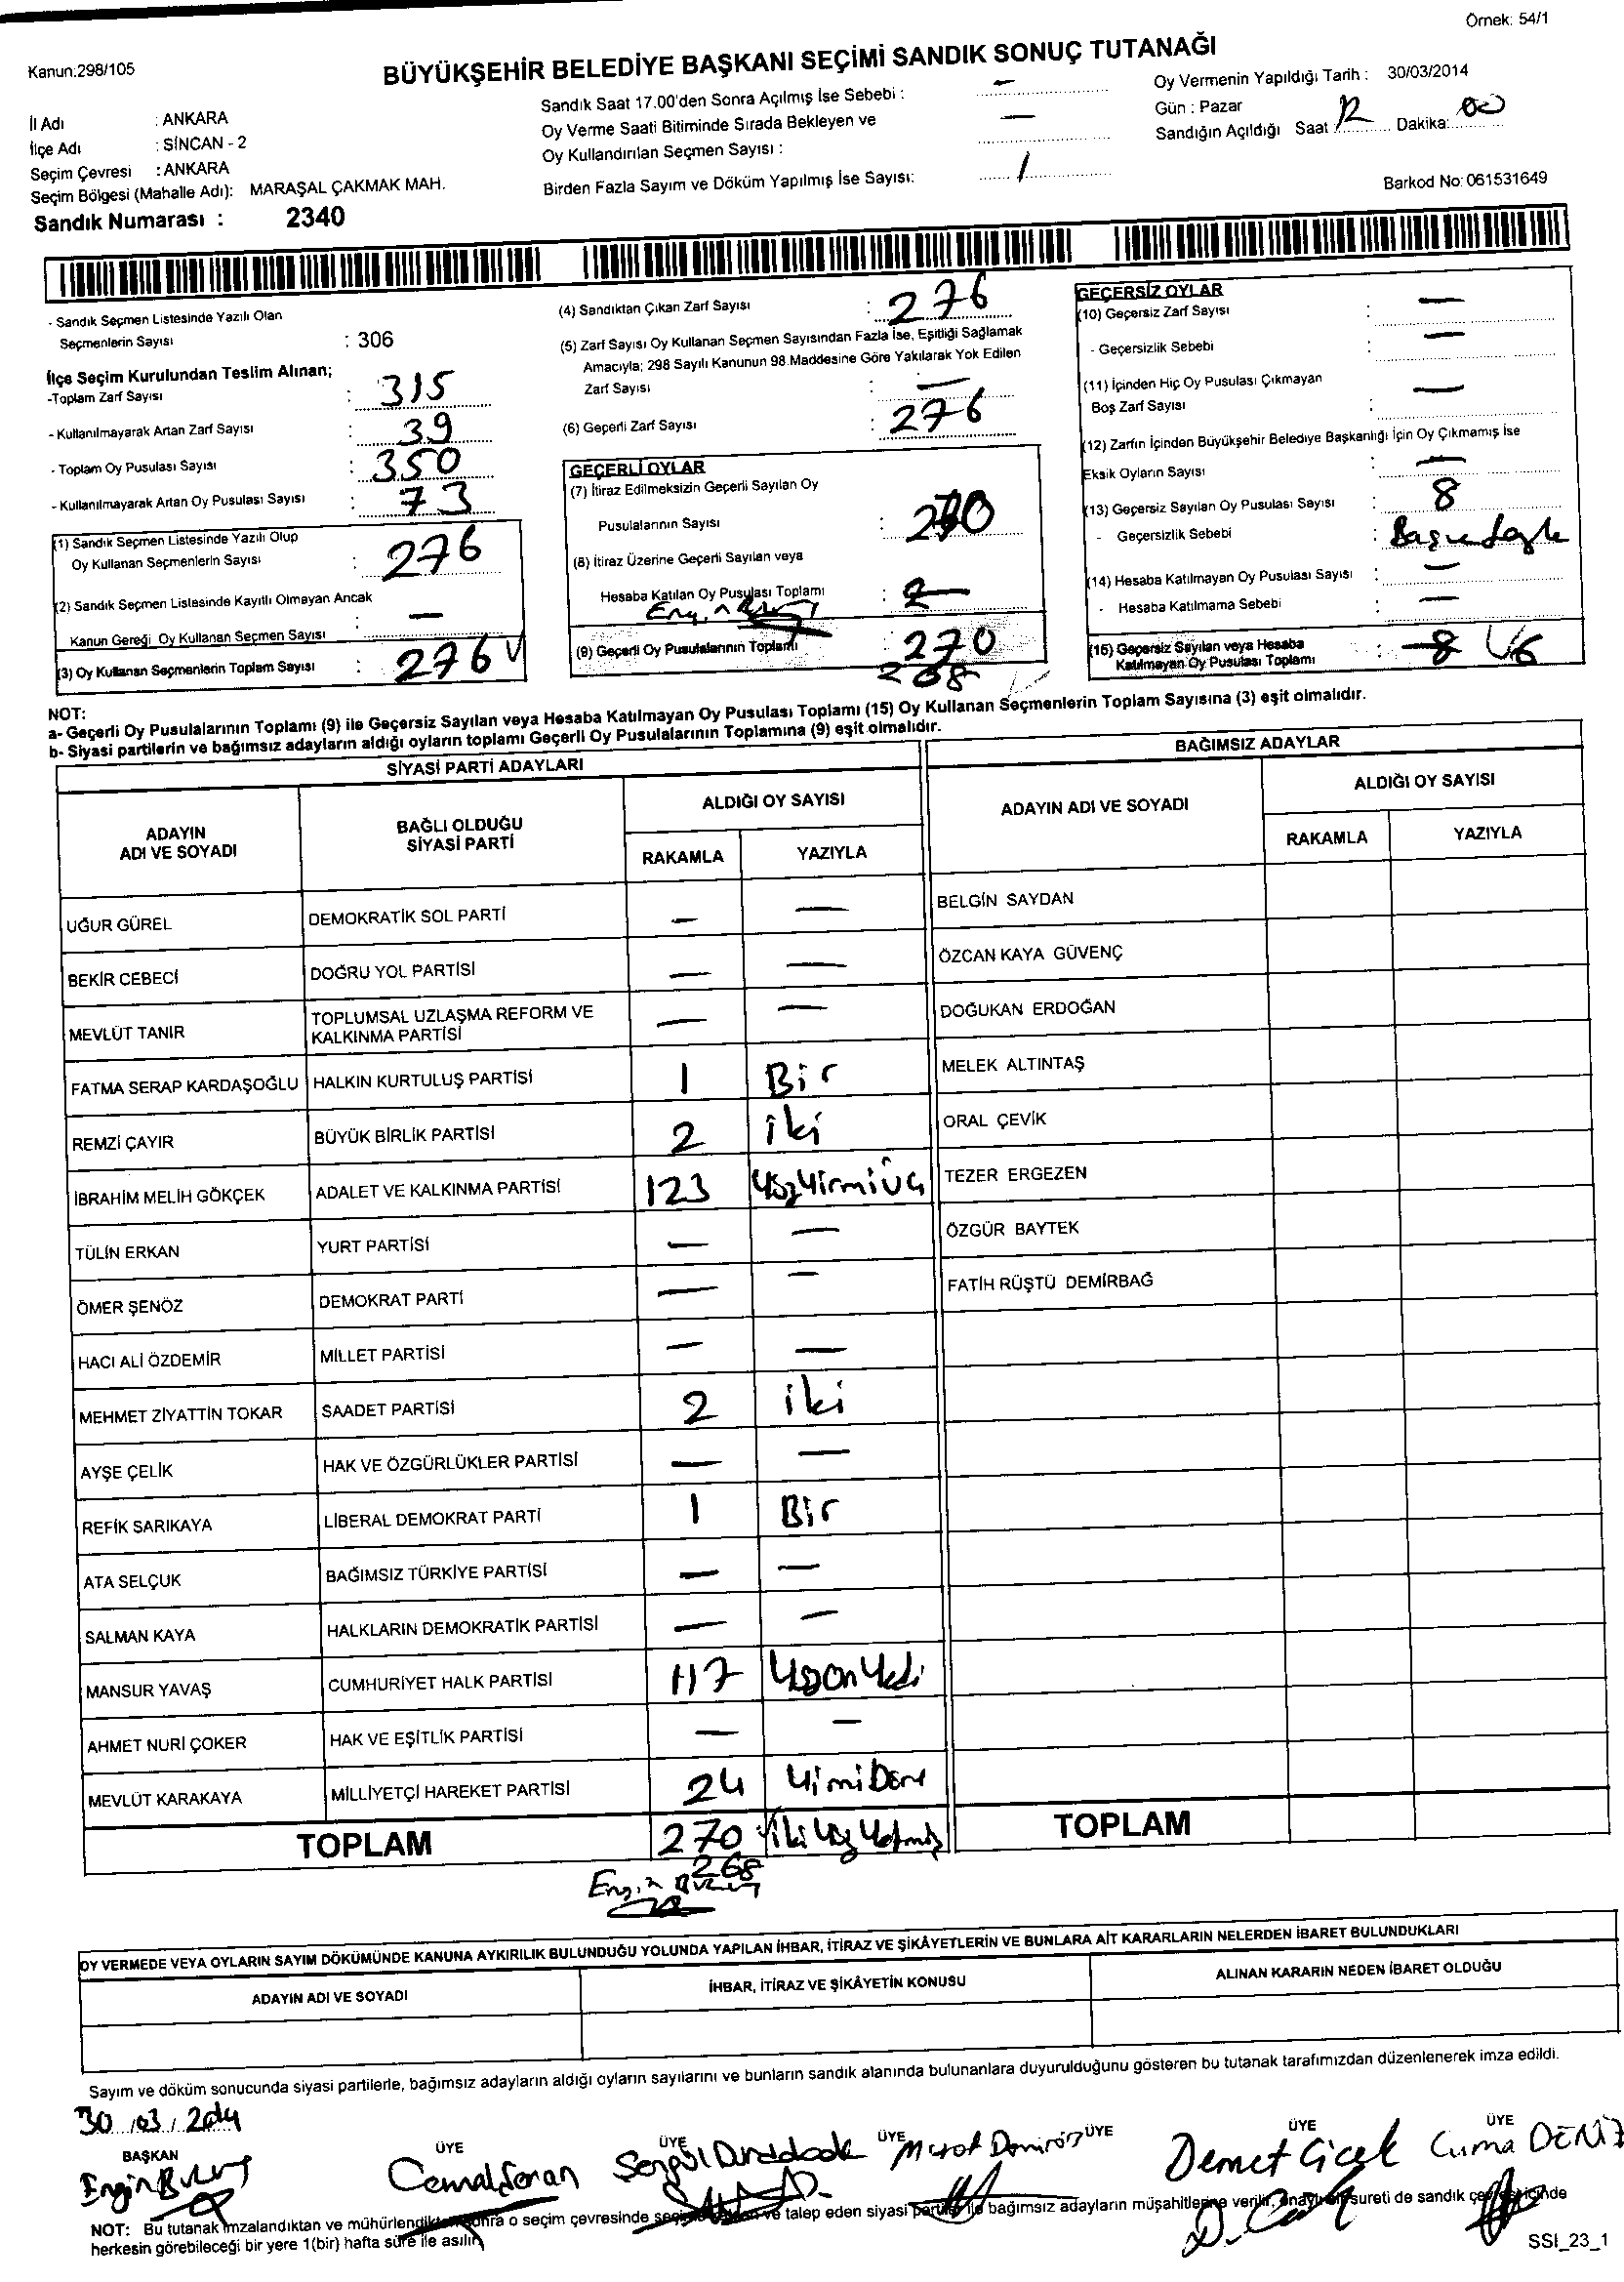 Örnek: 54/1
Kanun:298/105
BÜYÜKŞEHİR BELEDİYE BAŞKANI SEÇİMİ SANDIK SONUÇ TUTANAĞI
İl Adı : ANKARA
İlçe Adı : SİNCAN - 2
Seçim Çevresi : ANKARA
Seçim Bölgesi (Mahalle Adı): MARAŞAL ÇAKMAK MAH.
Sandık Numarası : 2340
Sandık Saat 17.00'den Sonra Açılmış İse Sebebi : —
Oy Verme Saati Bitiminde Sırada Bekleyen ve
Oy Kullandırılan Seçmen Sayısı : —
Birden Fazla Sayım ve Döküm Yapılmış İse Sayısı: /
Oy Vermenin Yapıldığı Tarih : 30/03/2014
Gün : Pazar
Sandığın Açıldığı Saat : 12 Dakika: 00
Barkod No: 061531649
- Sandık Seçmen Listesinde Yazılı Olan
Seçmenlerin Sayısı : 306
İlçe Seçim Kurulundan Teslim Alınan;
-Toplam Zarf Sayısı : 315
- Kullanılmayarak Artan Zarf Sayısı : 39
- Toplam Oy Pusulası Sayısı : 350
- Kullanılmayarak Artan Oy Pusulası Sayısı : 73
(1) Sandık Seçmen Listesinde Yazılı Olup
Oy Kullanan Seçmenlerin Sayısı : 276
(2) Sandık Seçmen Listesinde Kayıtlı Olmayan Ancak
Kanun Gereği Oy Kullanan Seçmen Sayısı : —
(3) Oy Kullanan Seçmenlerin Toplam Sayısı : 276
(4) Sandıktan Çıkan Zarf Sayısı : 276
(5) Zarf Sayısı Oy Kullanan Seçmen Sayısından Fazla İse, Eşitliği Sağlamak
Amacıyla; 298 Sayılı Kanunun 98.Maddesine Göre Yakılarak Yok Edilen
Zarf Sayısı : —
(6) Geçerli Zarf Sayısı : 276
GEÇERLİ OYLAR
(7) İtiraz Edilmeksizin Geçerli Sayılan Oy
Pusulalarının Sayısı :
(8) İtiraz Üzerine Geçerli Sayılan veya
Hesaba Katılan Oy Pusulası Toplamı :
(9) Geçerli Oy Pusulalarının Toplamı : 270
268
GEÇERSİZ OYLAR
(10) Geçersiz Zarf Sayısı : —
- Geçersizlik Sebebi : —
(11) İçinden Hiç Oy Pusulası Çıkmayan
Boş Zarf Sayısı : —
(12) Zarfın İçinden Büyükşehir Belediye Başkanlığı İçin Oy Çıkmamış İse
Eksik Oyların Sayısı : —
(13) Geçersiz Sayılan Oy Pusulası Sayısı : 8
- Geçersizlik Sebebi :
(14) Hesaba Katılmayan Oy Pusulası Sayısı : —
- Hesaba Katılmama Sebebi : —
(15) Geçersiz Sayılan veya Hesaba
Katılmayan Oy Pusulası Toplamı : 8
NOT:
a- Geçerli Oy Pusulalarının Toplamı (9) ile Geçersiz Sayılan veya Hesaba Katılmayan Oy Pusulası Toplamı (15) Oy Kullanan Seçmenlerin Toplam Sayısına (3) eşit olmalıdır.
b- Siyasi partilerin ve bağımsız adayların aldığı oyların toplamı Geçerli Oy Pusulalarının Toplamına (9) eşit olmalıdır.
SİYASİ PARTİ ADAYLARI
ADAYIN ADI VE SOYADI
BAĞLI OLDUĞU SİYASİ PARTİ
ALDIĞI OY SAYISI
RAKAMLA YAZIYLA
UĞUR GÜREL DEMOKRATİK SOL PARTİ — —
BEKİR CEBECİ DOĞRU YOL PARTİSİ — —
MEVLÜT TANIR TOPLUMSAL UZLAŞMA REFORM VE KALKINMA PARTİSİ — —
FATMA SERAP KARDAŞOĞLU HALKIN KURTULUŞ PARTİSİ 1 Bir
REMZİ ÇAYIR BÜYÜK BİRLİK PARTİSİ 2 iki
İBRAHİM MELİH GÖKÇEK ADALET VE KALKINMA PARTİSİ 123 Yüzyirmiüç
TÜLİN ERKAN YURT PARTİSİ — —
ÖMER ŞENÖZ DEMOKRAT PARTİ — —
HACI ALİ ÖZDEMİR MİLLET PARTİSİ — —
MEHMET ZİYATTİN TOKAR SAADET PARTİSİ 2 iki
AYŞE ÇELİK HAK VE ÖZGÜRLÜKLER PARTİSİ — —
REFİK SARIKAYA LİBERAL DEMOKRAT PARTİ 1 Bir
ATA SELÇUK BAĞIMSIZ TÜRKİYE PARTİSİ — —
SALMAN KAYA HALKLARIN DEMOKRATİK PARTİSİ — —
MANSUR YAVAŞ CUMHURİYET HALK PARTİSİ 117 Yüzonyedi
AHMET NURİ ÇOKER HAK VE EŞİTLİK PARTİSİ — —
MEVLÜT KARAKAYA MİLLİYETÇİ HAREKET PARTİSİ 24
TOPLAM 270 iki Yüz Yetmiş
268
BAĞIMSIZ ADAYLAR
ADAYIN ADI VE SOYADI
ALDIĞI OY SAYISI
RAKAMLA YAZIYLA
BELGİN SAYDAN
ÖZCAN KAYA GÜVENÇ
DOĞUKAN ERDOĞAN
MELEK ALTINTAŞ
ORAL ÇEVİK
TEZER ERGEZEN
ÖZGÜR BAYTEK
FATİH RÜŞTÜ DEMİRBAĞ
TOPLAM
OY VERMEDE VEYA OYLARIN SAYIM DÖKÜMÜNDE KANUNA AYKIRILIK BULUNDUĞU YOLUNDA YAPILAN İHBAR, İTİRAZ VE ŞİKÂYETLERİN VE BUNLARA AİT KARARLARIN NELERDEN İBARET BULUNDUKLARI
ADAYIN ADI VE SOYADI İHBAR, İTİRAZ VE ŞİKÂYETİN KONUSU ALINAN KARARIN NEDEN İBARET OLDUĞU
Sayım ve döküm sonucunda siyasi partilerle, bağımsız adayların aldığı oyların sayılarını ve bunların sandık alanında bulunanlara duyurulduğunu gösteren bu tutanak tarafımızdan düzenlenerek imza edildi.
30/03/2014
BAŞKAN ÜYE ÜYE ÜYE ÜYE ÜYE ÜYE
Engin Demet Çiçek Cuma DENİZ
NOT: Bu tutanak imzalandıktan ve mühürlendikten sonra o seçim çevresinde talep eden siyasi partiler ile bağımsız adayların müşahitlerine verilir, onaylı bir sureti de sandık çevresi içinde
herkesin görebileceği bir yere 1(bir) hafta süre ile asılır.
SSI_23_1